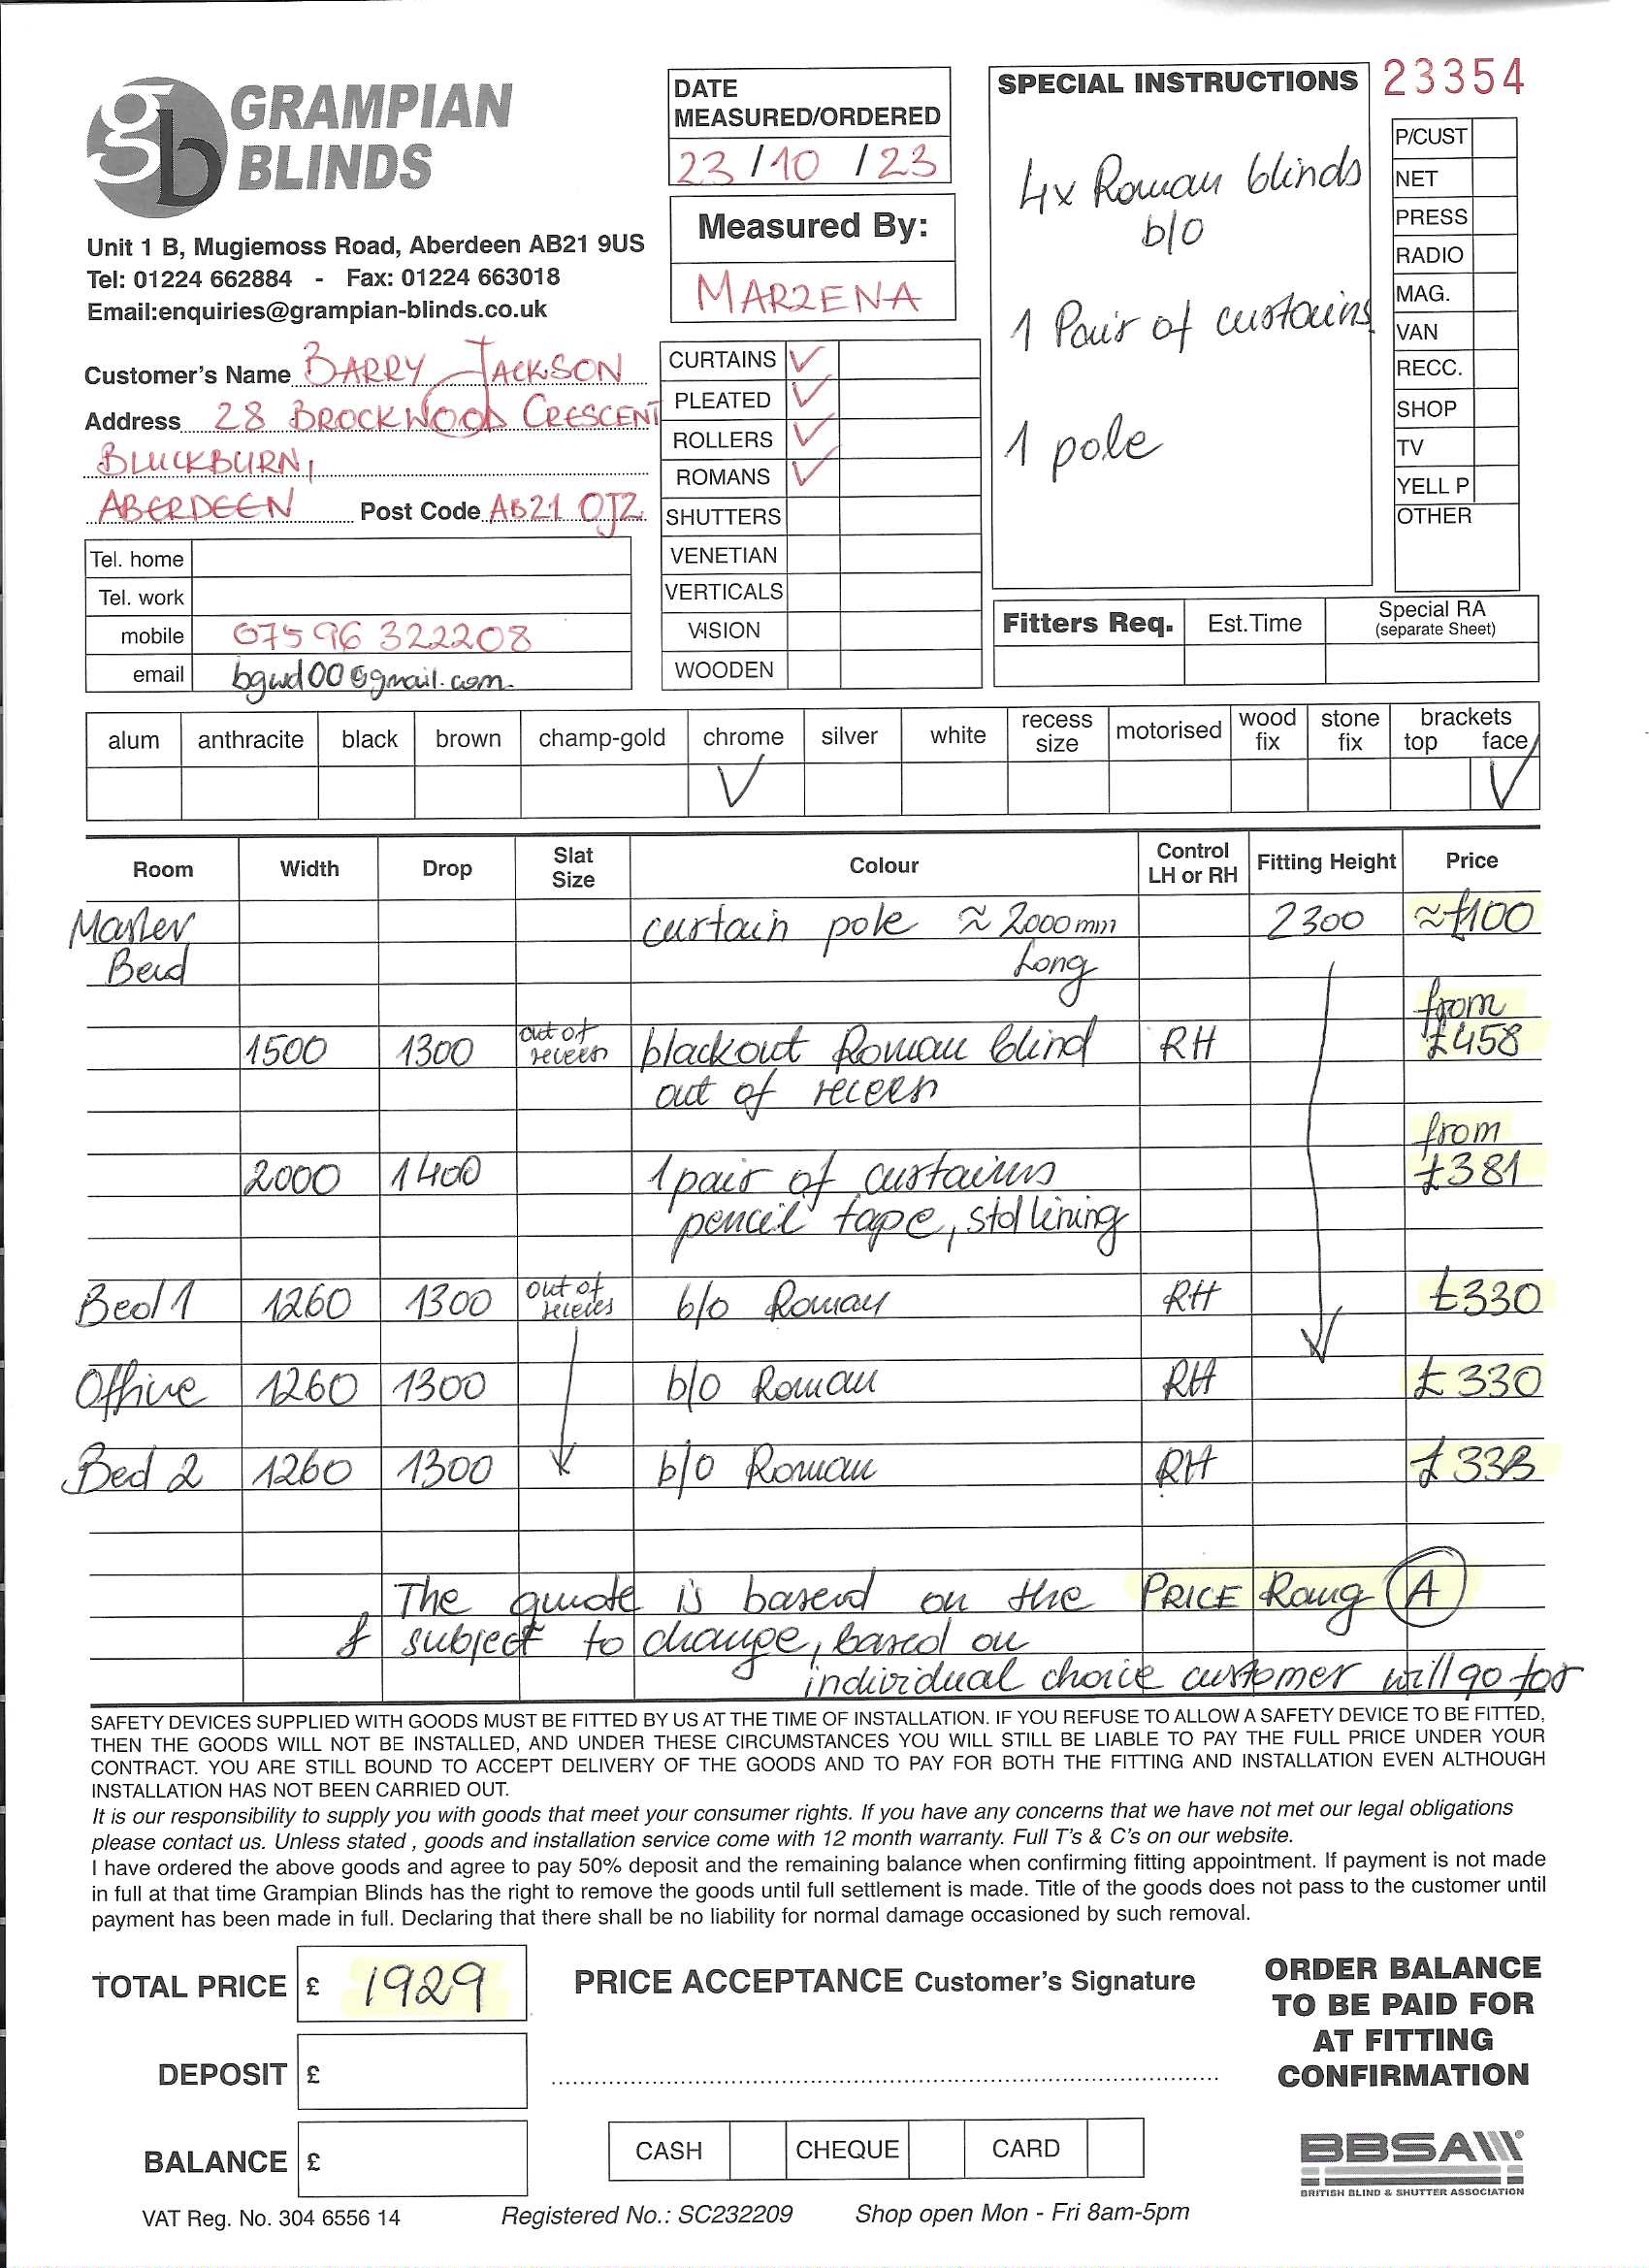 gb GRAMPIAN
BLINDS
Unit 1 B, Mugiemoss Road, Aberdeen AB21 9US
Tel: 01224 662884 - Fax: 01224 663018
Email:enquiries@grampian-blinds.co.uk
DATE
MEASURED/ORDERED
23 / 10 / 23
Measured By:
MARZENA
SPECIAL INSTRUCTIONS
4x Roman blinds
b/o
1 Pair of curtains
1 pole
23354
P/CUST
NET
PRESS
RADIO
MAG.
VAN
RECC.
SHOP
TV
YELL P
OTHER
Customer's Name BARRY JACKSON
Address 28 BROCKWOOD CRESCENT
BLUCKBURN,
ABERDEEN Post Code AB21 0JZ
Tel. home
Tel. work
mobile 07596 322208
email bgwd00@gmail.com
CURTAINS ✓
PLEATED ✓
ROLLERS ✓
ROMANS ✓
SHUTTERS
VENETIAN
VERTICALS
VISION
WOODEN
Fitters Req. Est.Time Special RA
(separate Sheet)
alum anthracite black brown champ-gold chrome silver white recess size motorised wood fix stone fix brackets top face
✓ ✓
Room Width Drop Slat Size Colour Control LH or RH Fitting Height Price
Master curtain pole ≈ 2000mm 2300 ≈£100
Bed Long
from
1500 1300 out of recess blackout Roman blind RH £458
out of recess
from
2000 1400 1 pair of curtains £381
pencil tape, std lining
Bed 1 1260 1300 out of recess b/o Roman RH £330
Office 1260 1300 b/o Roman RH £330
Bed 2 1260 1300 b/o Roman RH £33
The quote is based on the PRICE Rang A
& subject to change, based on
individual choice customer will go for
SAFETY DEVICES SUPPLIED WITH GOODS MUST BE FITTED BY US AT THE TIME OF INSTALLATION. IF YOU REFUSE TO ALLOW A SAFETY DEVICE TO BE FITTED,
THEN THE GOODS WILL NOT BE INSTALLED, AND UNDER THESE CIRCUMSTANCES YOU WILL STILL BE LIABLE TO PAY THE FULL PRICE UNDER YOUR
CONTRACT. YOU ARE STILL BOUND TO ACCEPT DELIVERY OF THE GOODS AND TO PAY FOR BOTH THE FITTING AND INSTALLATION EVEN ALTHOUGH
INSTALLATION HAS NOT BEEN CARRIED OUT.
It is our responsibility to supply you with goods that meet your consumer rights. If you have any concerns that we have not met our legal obligations
please contact us. Unless stated , goods and installation service come with 12 month warranty. Full T's & C's on our website.
I have ordered the above goods and agree to pay 50% deposit and the remaining balance when confirming fitting appointment. If payment is not made
in full at that time Grampian Blinds has the right to remove the goods until full settlement is made. Title of the goods does not pass to the customer until
payment has been made in full. Declaring that there shall be no liability for normal damage occasioned by such removal.
TOTAL PRICE £ 1929
DEPOSIT £
BALANCE £
PRICE ACCEPTANCE Customer's Signature
CASH CHEQUE CARD
ORDER BALANCE
TO BE PAID FOR
AT FITTING
CONFIRMATION
BBSA
BRITISH BLIND & SHUTTER ASSOCIATION
VAT Reg. No. 304 6556 14 Registered No.: SC232209 Shop open Mon - Fri 8am-5pm